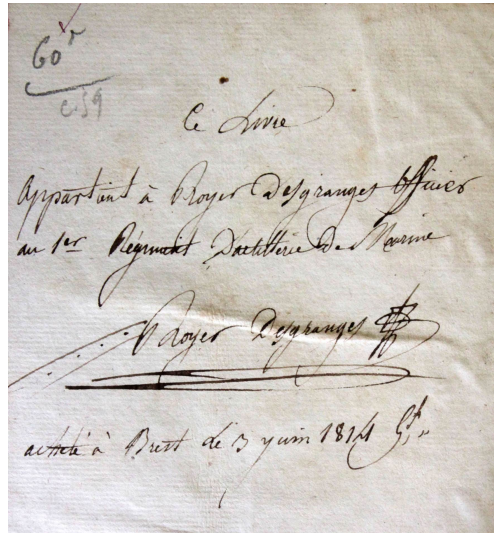 60r
c.59
Ce Livre
appartient à Royer Desgranges Officier
au 1er Régiment D'artillerie De Marine
Royer Desgranges
acheté à Brest le 3 juin 1814